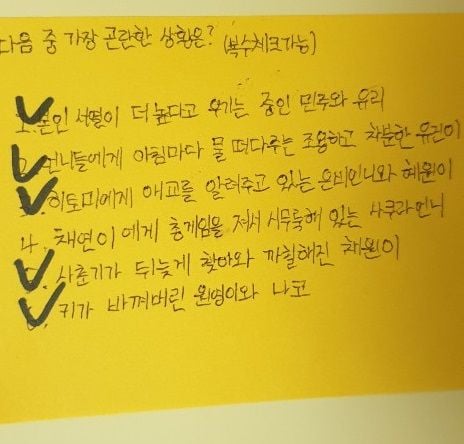 다음 중 가장 곤란한 상황은? (복수체크가능)
1. 본인 서열이 더 높다고 우기는 중인 민주와 유리
2. 언니들에게 아침마다 물 떠다주는 조용하고 차분한 유진이
3. 히토미에게 애교를 알려주고 있는 은비언니와 혜원이
4. 채연이에게 총게임을 져서 시무룩해 있는 사쿠라언니
사춘기가 뒤늦게 찾아와 까칠해진 채원이
키가 바껴버린 원영이와 나코